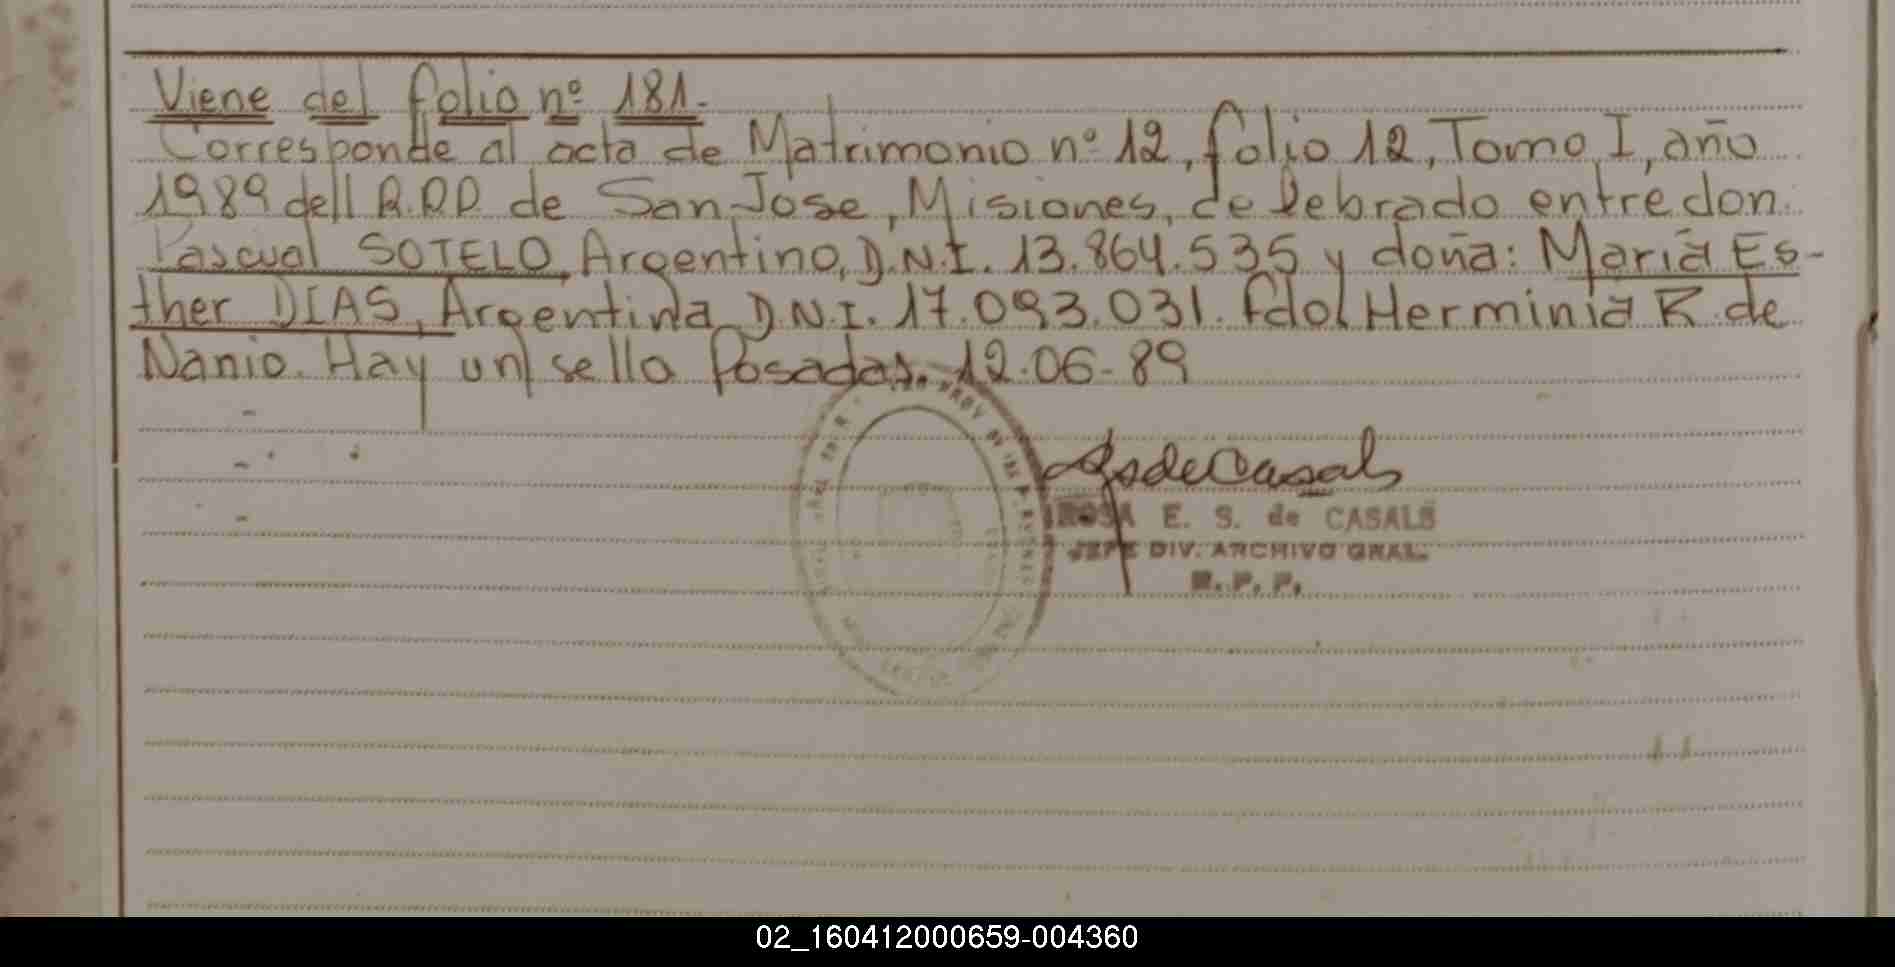 Viene del folio nº 181.-
Corresponde al acta de Matrimonio nº 12, folio 12, Tomo I, año
1989 dell R.P.P. de San Jose, Misiones, celebrado entre don
Pascual SOTELO Argentino, D.N.I. 13.864.535 y doña: Maria Es-
ther DIAS, Argentina D.N.I. 17.093.031. fdo/ Herminia R. de
Nanio. Hay un sello Posadas, 12.06-89
ROSA E. S. de CASALS
JEFE DIV. ARCHIVO GRAL.
R. P. P.
02_160412000659-004360